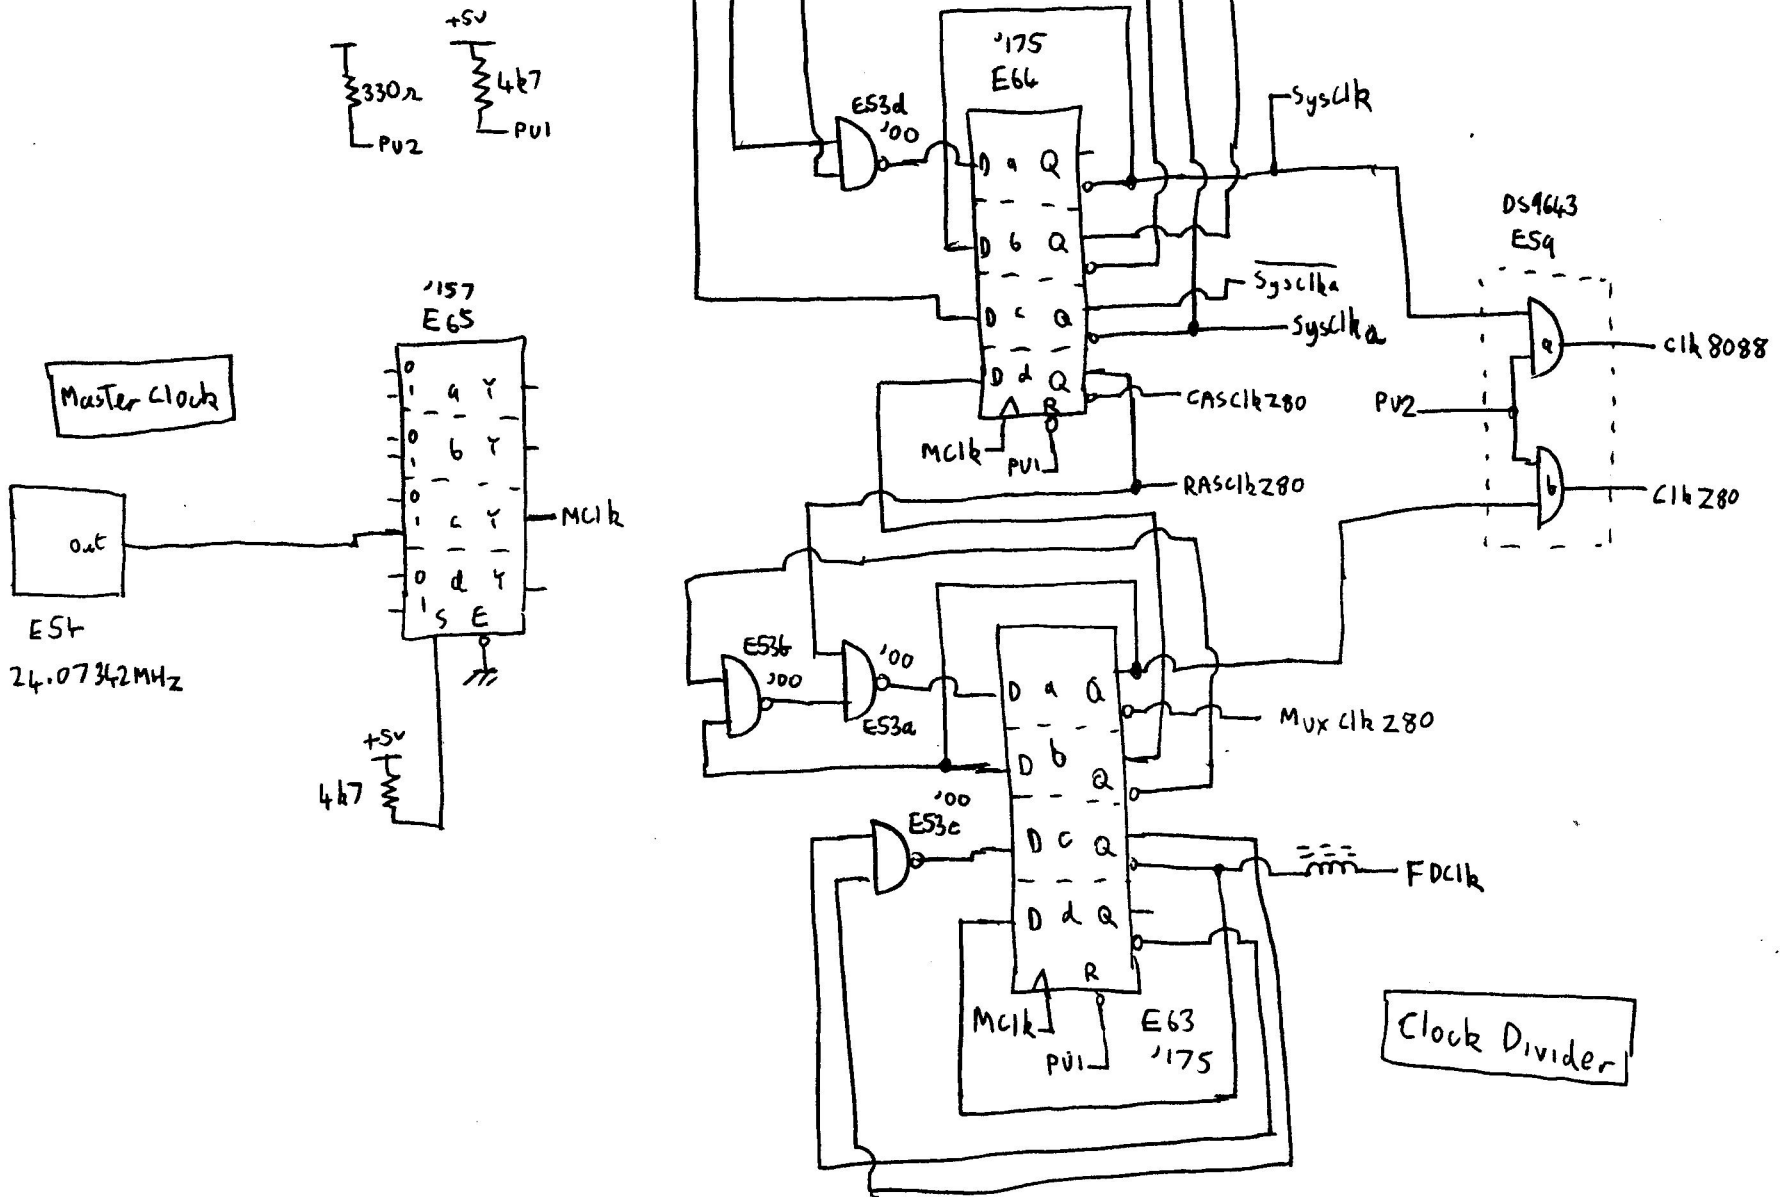 +5v
330Ω
4k7
PU2
PU1
'157
E65
Master Clock
0
1
a Y
0
1
b Y
0
1
c Y
MClk
0
1
d Y
S E
Out
E54
24.07342MHz
+5v
4k7
'175
E64
E53d
'00
D a Q
D b Q
D c Q
D d Q
R
MClk
PU1
SysClk
SysClka
SysClka
CASClkZ80
RASClkZ80
DS9643
E59
a
b
PU2
Clk8088
ClkZ80
E53b
'00
'00
E53a
D a Q
D b Q
MuxClkZ80
'00
E53c
D c Q
D d Q
R
FDClk
MClk
PU1
E63
'175
Clock Divider